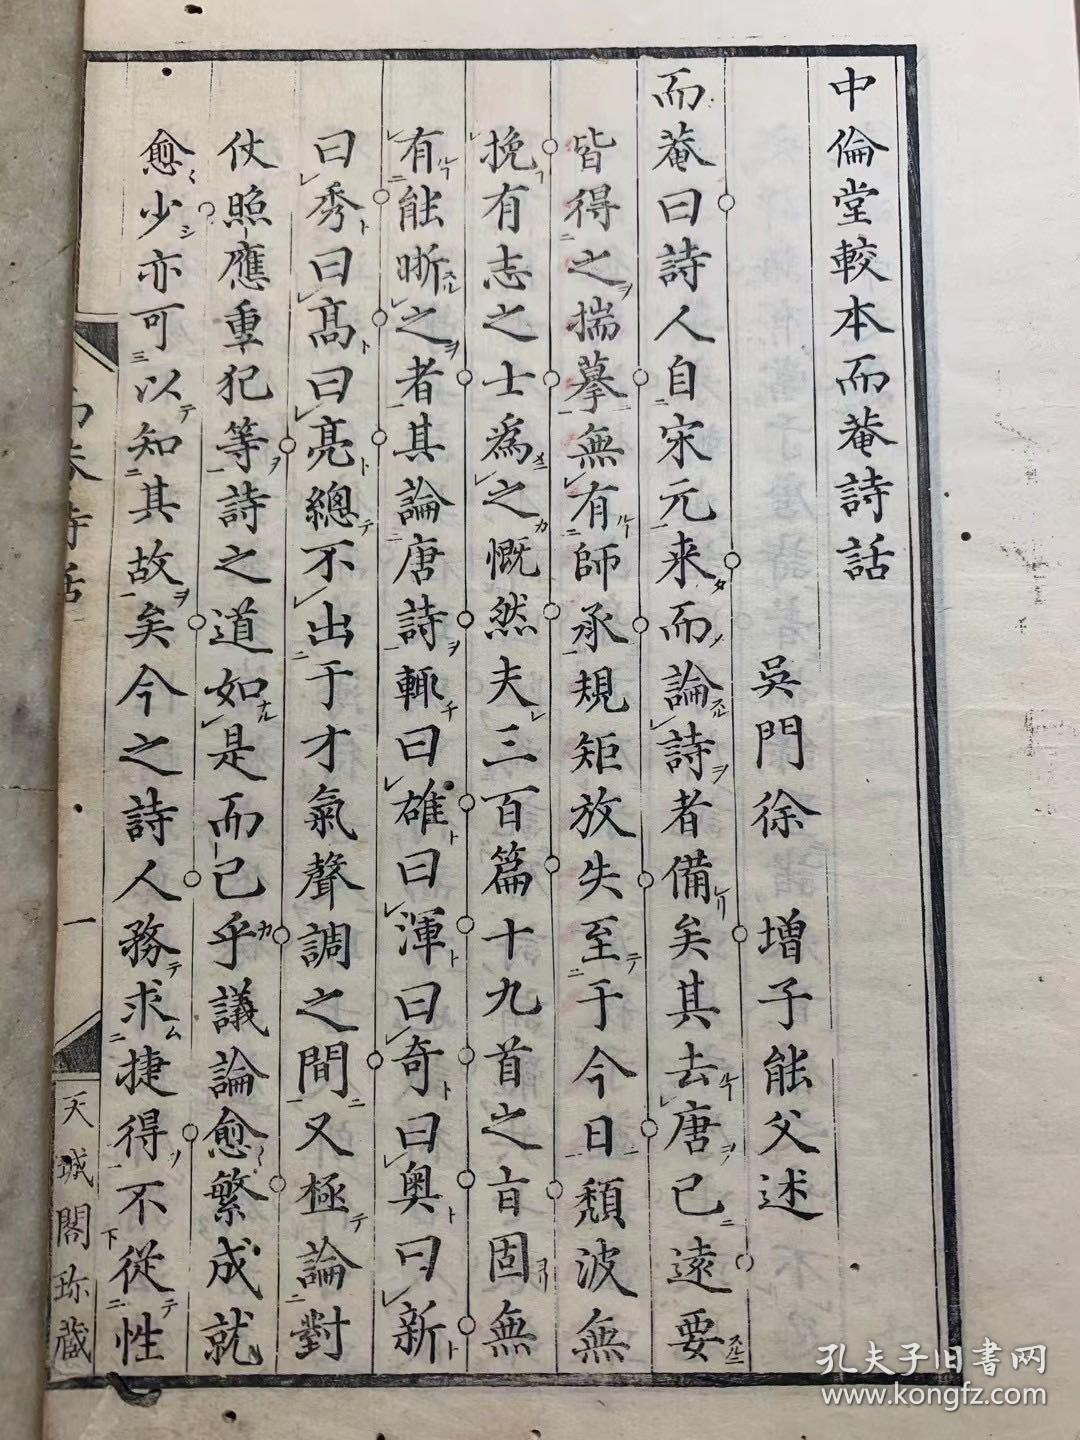 中倫堂較本而菴詩話
吳門徐　增子能父述
而菴曰詩人自宋元来而論詩者備矣其去唐已遠要
皆得之揣摹無有師承規矩放失至于今日頽波無
挽有志之士爲之慨然夫三百篇十九首之旨固無
有能晰之者其論唐詩輒曰雄曰渾曰奇曰奥曰新
曰秀曰高曰亮總不出于才氣聲調之間又極論對
仗照應重犯等詩之道如是而已乎議論愈繁成就
愈少亦可以知其故矣今之詩人務求捷得不從性
而菴詩話
一
天城閣珎蔵
孔夫子旧書网
www.kongfz.com